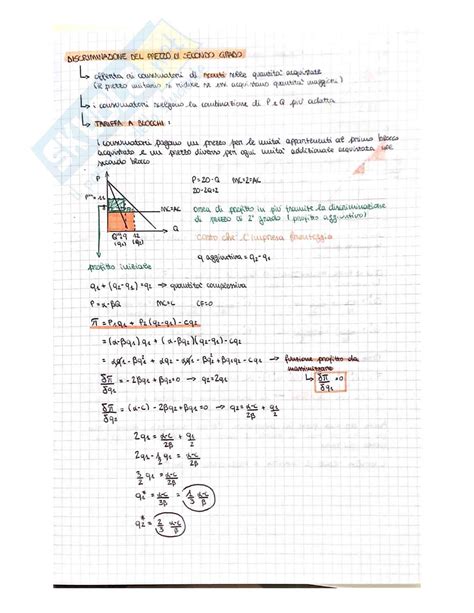 DISCRIMINAZIONE DEL PREZZO DI SECONDO GRADO
↳ offerta ai consumatori di sconti sulle quantità acquistate
(il prezzo unitario si riduce se si acquistano quantità maggiori)
↳ i consumatori scelgono la combinazione di P e Q più adatta
↳ TARIFFA A BLOCCHI :
i consumatori pagano un prezzo per le unità appartenenti al primo blocco
acquistato e un prezzo diverso per ogni unità addizionale acquistata nel
secondo blocco
P
P=20-Q MC=2=AC
20-2Q=2
MC=AC
Q
(q1) (q2)
area di profitto in più tramite la discriminazione
di prezzo di 2° grado (profitto aggiuntivo)
costo che l'impresa fronteggia
q aggiuntiva = q2-q1
profitto iniziale
q1 + (q2-q1) = q2 → quantità complessiva
P = α-βQ MC=C CF=0
π = P1q1 + P2(q2-q1) - cq2
= (α-βq1)q1 + (α-βq2)(q2-q1) - cq2
= αq1 - βq1² + αq2 - αq1 - βq2² + βq1q2 - cq2 → funzione profitto da
massimizzare
↳ δπ/δq1 = 0
δπ/δq1 = -2βq1 + βq2 = 0 → q2 = 2q1
δπ/δq2 = (α-c) - 2βq2 + βq1 = 0 → q2 = α-c/2β + q1/2
2q1 = α-c/2β + q1/2
2q1 - 1/2 q1 = α-c/2β
3/2 q1 = α-c/2β
q1* = α-c/3β = 1/3 α-c/β
q2* = 2/3 α-c/β